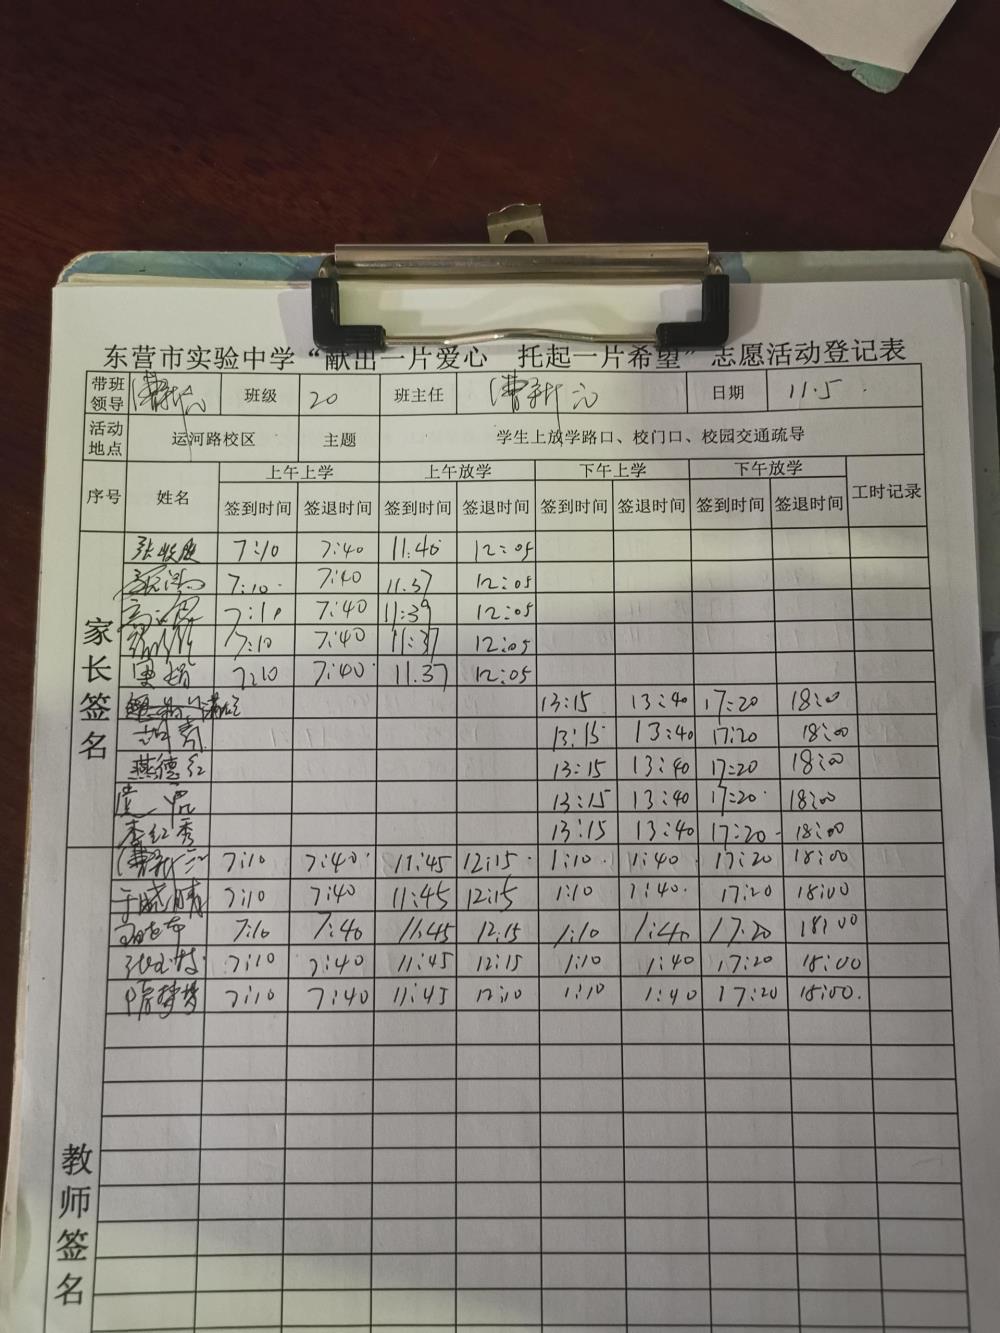 东营市实验中学“献出一片爱心 托起一片希望”志愿活动登记表
带班领导 曹新元 班级 20 班主任 曹新元 日期 11.5
活动地点 运河路校区 主题 学生上放学路口、校门口、校园交通疏导
序号 姓名 上午上学 上午放学 下午上学 下午放学 工时记录
签到时间 签退时间 签到时间 签退时间 签到时间 签退时间 签到时间 签退时间
家长签名
7:10 7:40 11:40 12:05
7:10 7:40 11.37 12:05
7:10 7:40 11:39 12:05
7:10 7:40 11:37 12:05
7:10 7:40 11.37 12:05
13:15 13:40 17:20 18:00
13:15 13:40 17:20 18:00
燕德红 13:15 13:40 17:20 18:00
13:15 13:40 17:20 18:00
李红秀 13:15 13:40 17:20 18:00
教师签名
曹新元 7:10 7:40 11:45 12:15 1:10 1:40 17:20 18:00
于晓晴 7:10 7:40 11:45 12:15 1:10 1:40 17:20 18:00
7:10 7:40 11:45 12:15 1:10 1:40 17:20 18:00
7:10 7:40 11:45 12:15 1:10 1:40 17:20 18:00
7:10 7:40 11:45 12:10 1:10 1:40 17:20 18:00